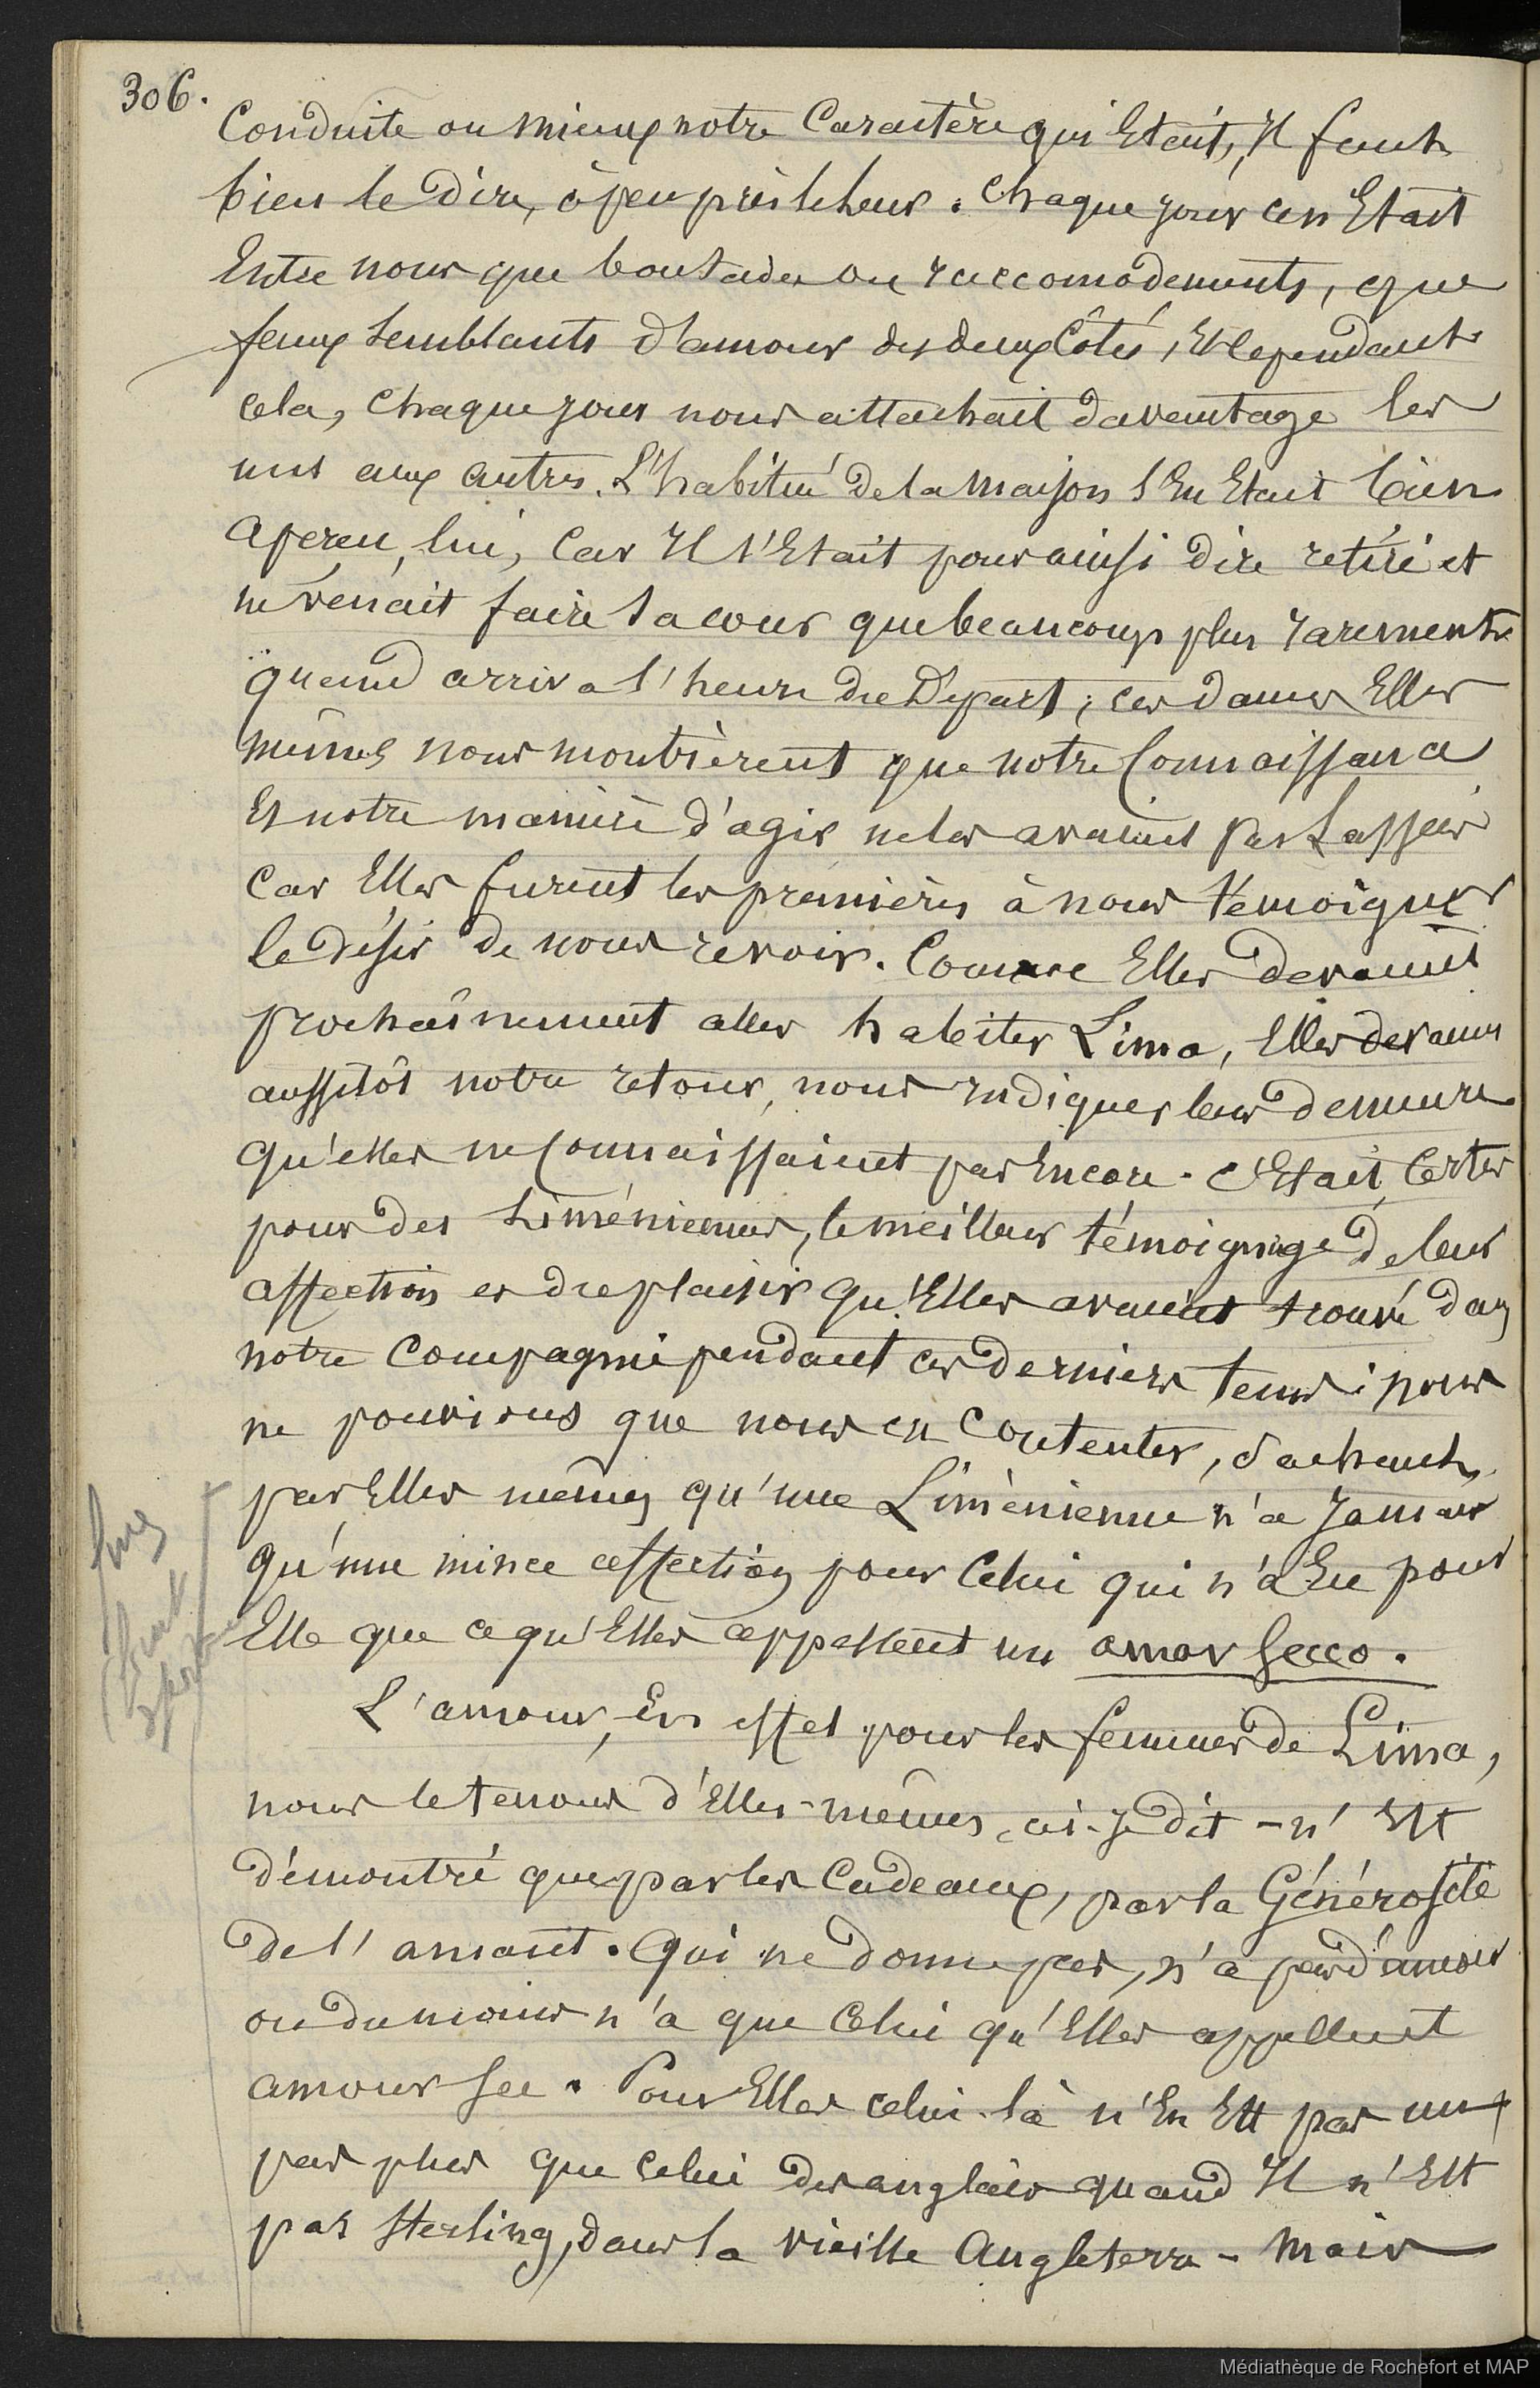 306.
Conduite ou mieux notre Caractère qui Etait, Il faut
bien le dire, à peu près le leur. Chaque jour ce n'Etait
Entre nous que boutades ou raccomodements, que
feux semblants d'amour des deux Côtés, Et cependant
cela, Chaque jour nous attachait davantage les
uns aux autres. L'habitué de la Maison s'En Etait bien
Aperçu, lui, Car Il s'Etait pour ainsi dire retiré et
ne venait faire sa cour que beaucoup plus rarement
quand arriva l'heure du Départ, ces dames Elles
mêmes nous montrèrent que notre Connaissance
Et notre manière d'agir ne les avaient pas Lassées
Car Elles furent les premières à nous témoigner
le désir de nous revoir. Comme Elles devaient
prochaînement aller habiter Lima, Elles devaient
aussitôt notre retour, nous indiquer leur demeure
qu'elles ne Connaissaient pas Encore. C'Etait, Certes
pour des Liméniennes, le meilleur témoignage de leur
affection et du plaisir qu'Elles avaient trouvé dans
notre Compagnie pendant ces derniers tems ; nous
ne pouvions que nous en Contenter, sachant
par Elles mêmes qu'une Liménienne n'a Jamais
qu'une mince affection pour Celui qui n'a Eu pour
Elle que ce qu'Elles appellent un amor secco.
L'amour, En effet pour les femmes de Lima,
nous le tenons d'Elles-mêmes, ai-je dit - n'Est
démontré que par les Cadeaux, par la Générosité
de l'amant. Qui ne donne pas, n'a pas d'amour
ou du moins n'a que Celui qu'Elles appellent
amour sec. Pour Elles celui-là n'En Est pas un
pas plus que Celui des anglais quand Il n'Est
pas Sterling, dans la vieille Angleterre - Mais
Médiathèque de Rochefort et MAP